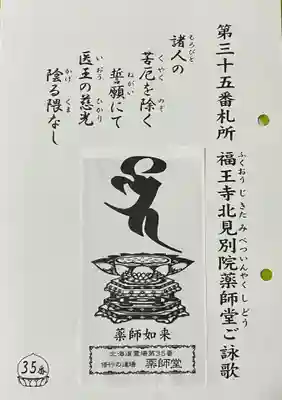 第三十五番札所
福王寺北見別院薬師堂ご詠歌
ふくおうじきたみべついんやくしどう
諸人の
もろびと
苦厄を除く
くやく のぞ
誓願にて
ねがい
医王の慈光
いおう ひかり
陰る隈なし
かげ くま
薬師如来
北海道霊場第35番
修行の道場 薬師堂
35番